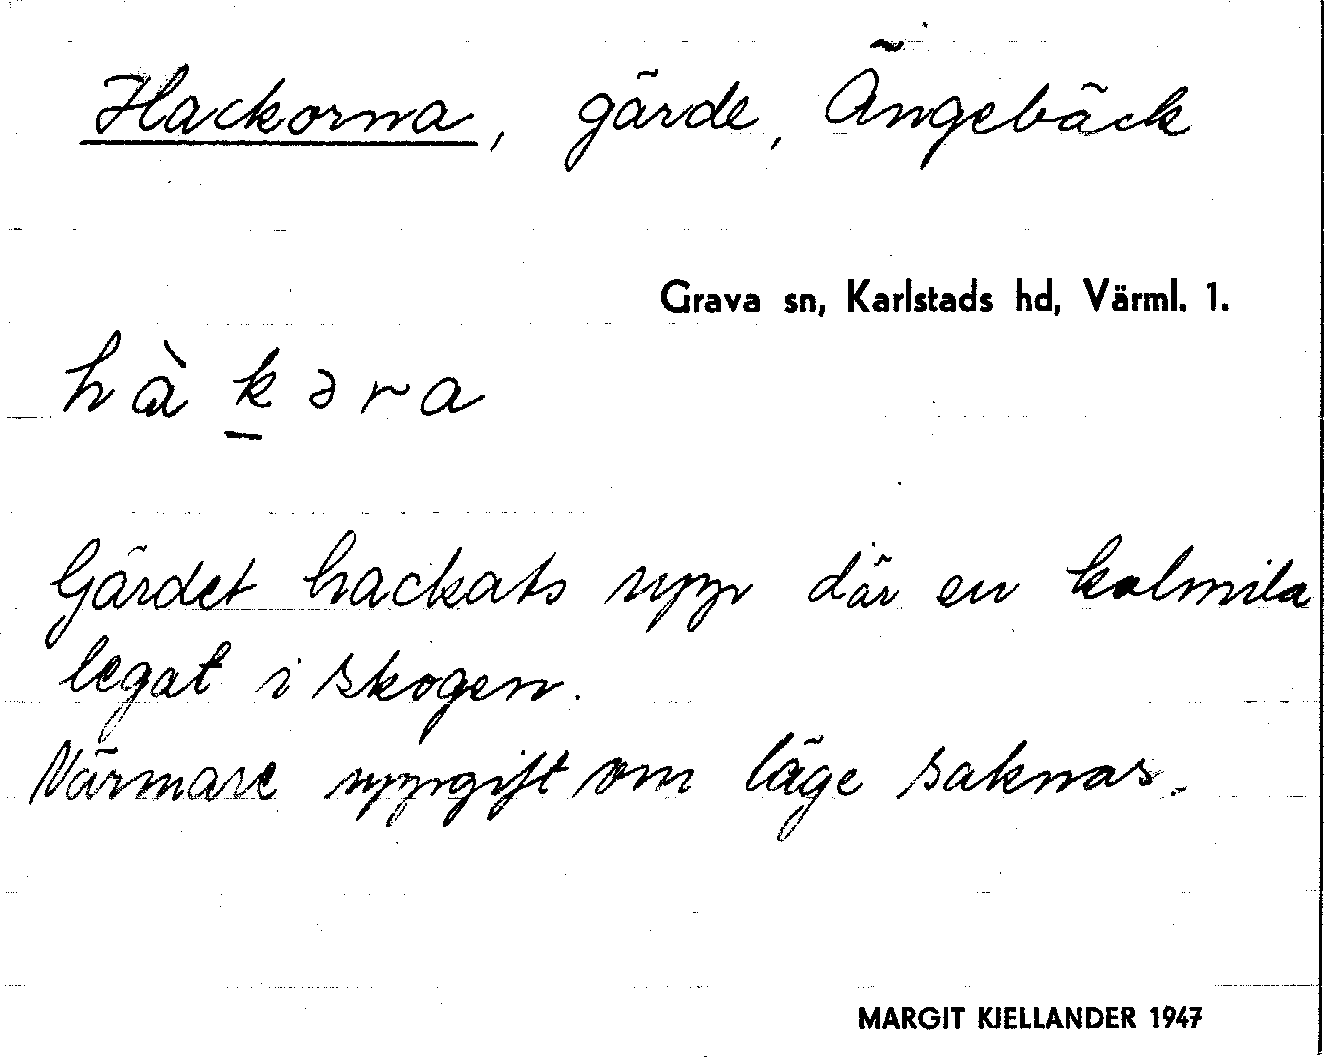 Hackorna, gärde, Ängebäck
Grava sn, Karlstads hd, Värml. 1.
hà k ə r a
Gärdet hackats upp där en kolmila
legat i skogen.
Närmare uppgift om läge saknas.
MARGIT KJELLANDER 1947